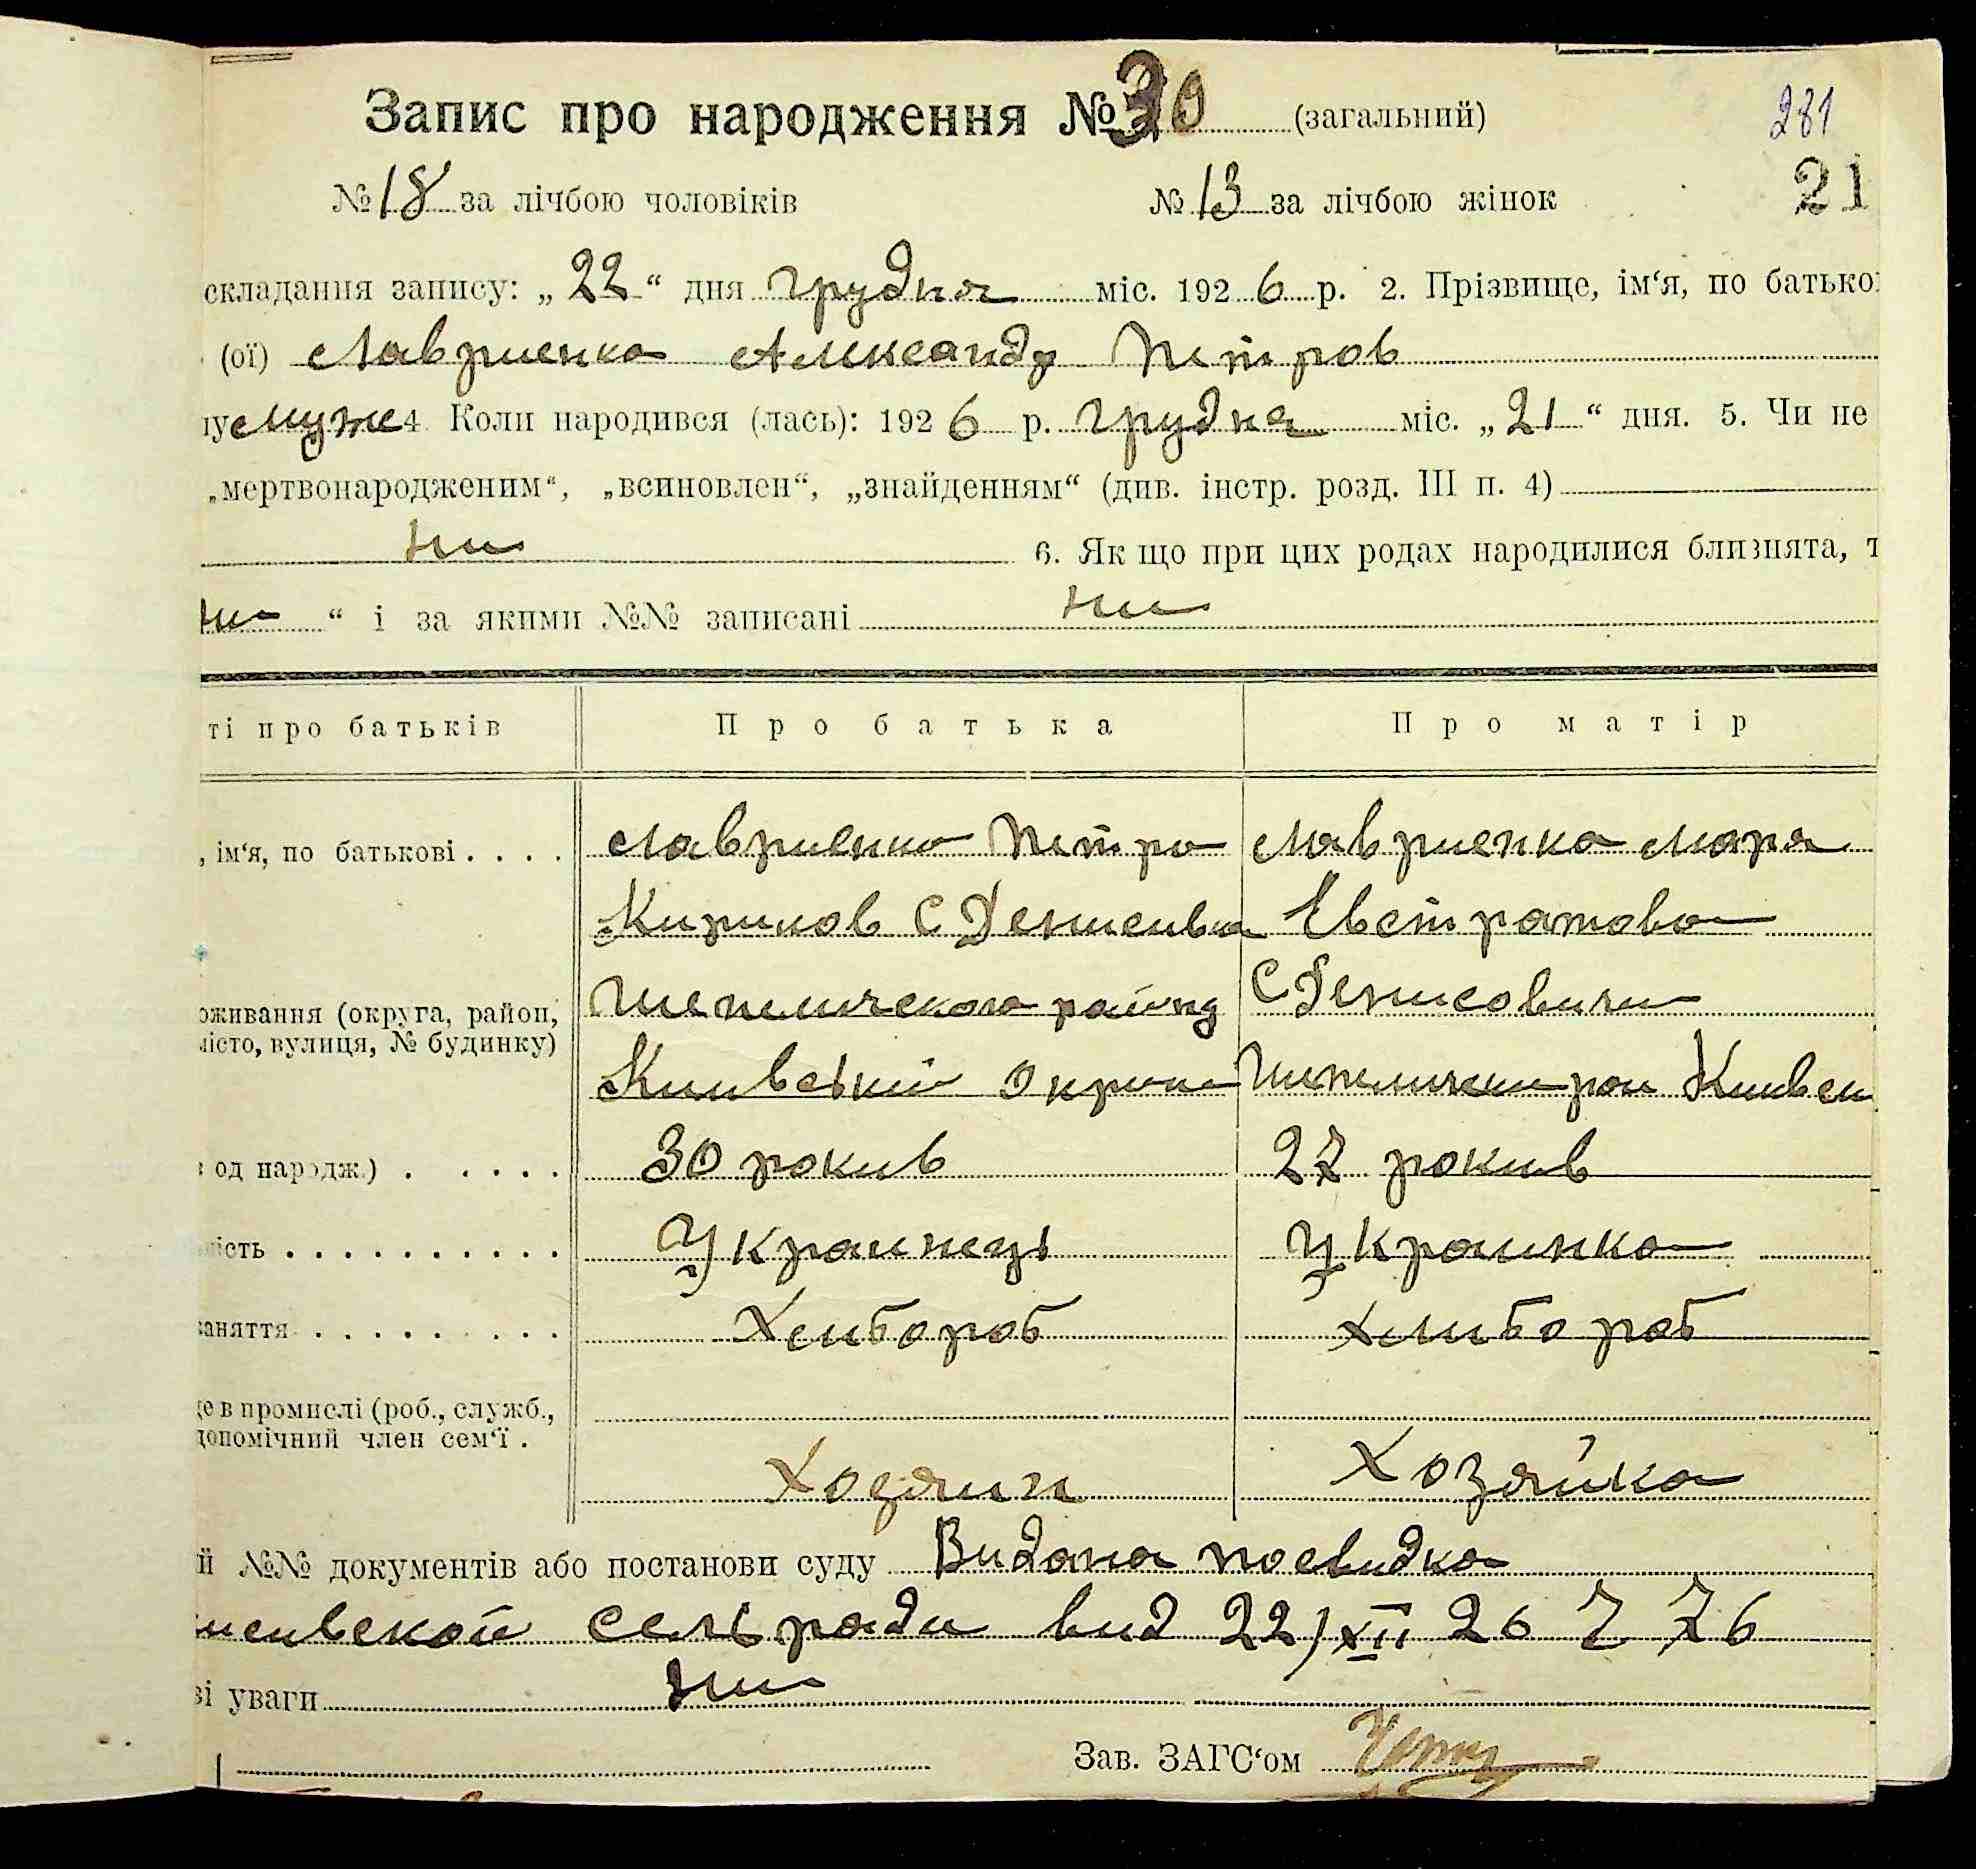 Запис про народження № 30 (загальний)
281
№ 18 за лічбою чоловіків № 13 за лічбою жінок 21
складання запису: „22“ дня грудня міс. 1926 р. 2. Прізвище, ім‘я, по батько
(ої) Лавриенко Александр Петров
муже 4 Коли народився (лась): 1926 р. грудня міс. „21“ дня. 5. Чи не
„мертвонародженим“, „всиновлен“, „знайденням“ (див. інстр. розд. III п. 4)
ни 6. Як що при цих родах народилися близнята, т
ни “ і за якими №№ записані ни
ті про батьків Про батька Про матір
, ім‘я, по батькові . . . . Лавриенко Петро Лавриенко Маря
Кирилов С Денисивка Евстратова
оживання (округа, район, Шепеличского району С Денисовичи
місто, вулиця, № будинку)
Киивський Шепелически рои Киивск
од народж.) . . . . . 30 рокив 27 рокив
ність . . . . . . . . . . Украинець Украинка
заняття . . . . . . . . . Хлибороб хлибороб
це в промислі (роб., служб.,
допомічний член сем‘ї .
Хозяин Хозяйка
й №№ документів або постанови суду Видана посвидка
исивской сельради вид 22/XII 26 76
ві уваги ни
Зав. ЗАГС‘ом